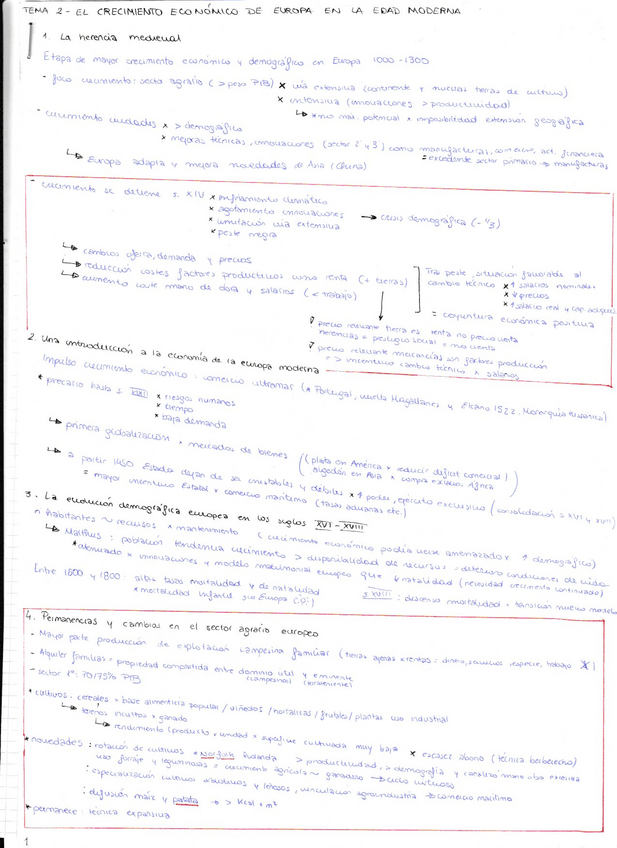 TEMA 2 - EL CRECIMIENTO ECONÓMICO DE EUROPA EN LA EDAD MODERNA
1. La herencia medieval
Etapa de mayor crecimiento económico y demográfico en Europa 1000-1300
- foco crecimiento: sector agrario (> peso PIB) x vía extensiva (continente y nuevas tierras de cultivo)
x intensiva (innovaciones > productividad)
↳ x no máx. potencial x imposibilidad extensión geográfica
- crecimiento ciudades x > demográfico
x mejoras técnicas, innovaciones (sector 2º y 3º) como manufacturas, comercio, act. financiera
= excedente sector primario → manufacturas
↳ Europa adapta y mejora novedades de Asia (China)
- crecimiento se detiene s. XIV x enfriamiento climático
x agotamiento innovaciones → crisis demográfica (- 1/3)
x limitación vía extensiva
x peste negra
↳ cambios oferta, demanda y precios
↳ reducción costes factores productivos como renta (+ tierras)
↳ aumento coste mano de obra y salarios (< trabajo)
Tras peste, situación favorable al
cambio técnico x ↑ salarios nominales
x ↓ precios
x ↑ salario real y cap. adquis.
= coyuntura económica positiva
precio relevante tierra es renta no precio venta
herencias = prestigio social = no venta
precio relevante mercancías son factores producción
=> incentivo cambio técnico x salarios
2. Una introducción a la economía de la europa moderna
Impulso crecimiento económico: comercio ultramar (* Portugal, vuelta Magallanes y Elcano 1522. Monarquía Hispánica)
* precario hasta s. XVIII x riesgos humanos
x tiempo
x baja demanda
↳ primera globalización x mercados de bienes (plata en América x reducir déficit comercial)
algodón en Asia x compra esclavos África
↳ a partir 1450 Estados dejan de ser inestables y débiles x ↑ poder, ejército exclusivo (consolidación s XVI y XVII)
= mayor incentivo Estatal x comercio marítimo (tasas aduanas etc.)
3. La evolución demográfica europea en los siglos XVI - XVIII
n habitantes ~ recursos x mantenimiento (crecimiento económico podía verse amenazado x ↑ demográfico)
↳ Malthus: población tendencia crecimiento > disponibilidad de recursos = deterioro condiciones de vida
* atenuado x innovaciones y modelo matrimonial europeo que ↓ natalidad (necesidad crecimiento continuado)
Entre 1500 y 1800: altas tasas mortalidad y de natalidad
* mortalidad infantil sur Europa
s. XVIII: descenso mortalidad = transición nuevo modelo
4. Permanencias y cambios en el sector agrario europeo
- Mayor parte producción de explotación campesina familiar (tierras ajenas x rentas: dinero, servicios, especie, trabajo)
- Alquiler familias = propiedad compartida entre dominio útil y eminente
(campesino) (terrateniente)
- sector 1º: 70/75% PIB
* cultivos: cereales x base alimenticia popular / viñedos / hortalizas / frutales / plantas uso industrial
↳ terrenos incultos x ganado
↳ rendimiento (producto x unidad x superficie cultivada muy baja x escasez abono (técnica barbecho)
* novedades: rotación de cultivos x Norfolk Holanda > productividad, > demografía y canalizó mano obra
uso forraje y leguminosas = crecimiento agrícola ~ ganadero → ciclo virtuoso
: especialización cultivos y vinculación agroindustria → comercio marítimo
: difusión maíz y patata → > Kcal x m²
* permanece: técnica expansiva
1